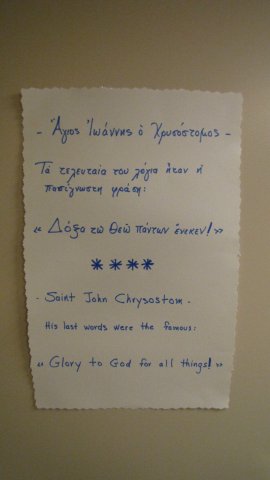 - Ἅγιος Ἰωάννης ὁ Χρυσόστομος -
Τά τελευταία του λόγια ἦταν ἡ
πασίγνωστη φράση:
« Δόξα τῷ Θεῷ πάντων ἕνεκεν! »
****
- Saint John Chrysostom -
His last words were the famous:
« Glory to God for all things! »